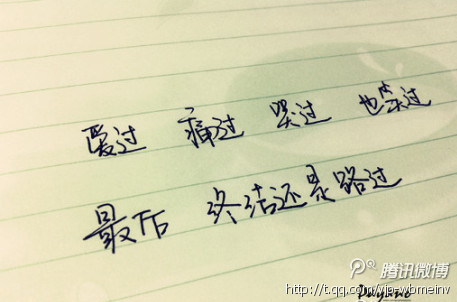 爱过 痛过 哭过 也笑过
最后 终结还是路过
腾讯微博
http://t.qq.com/vip-wbmeinv